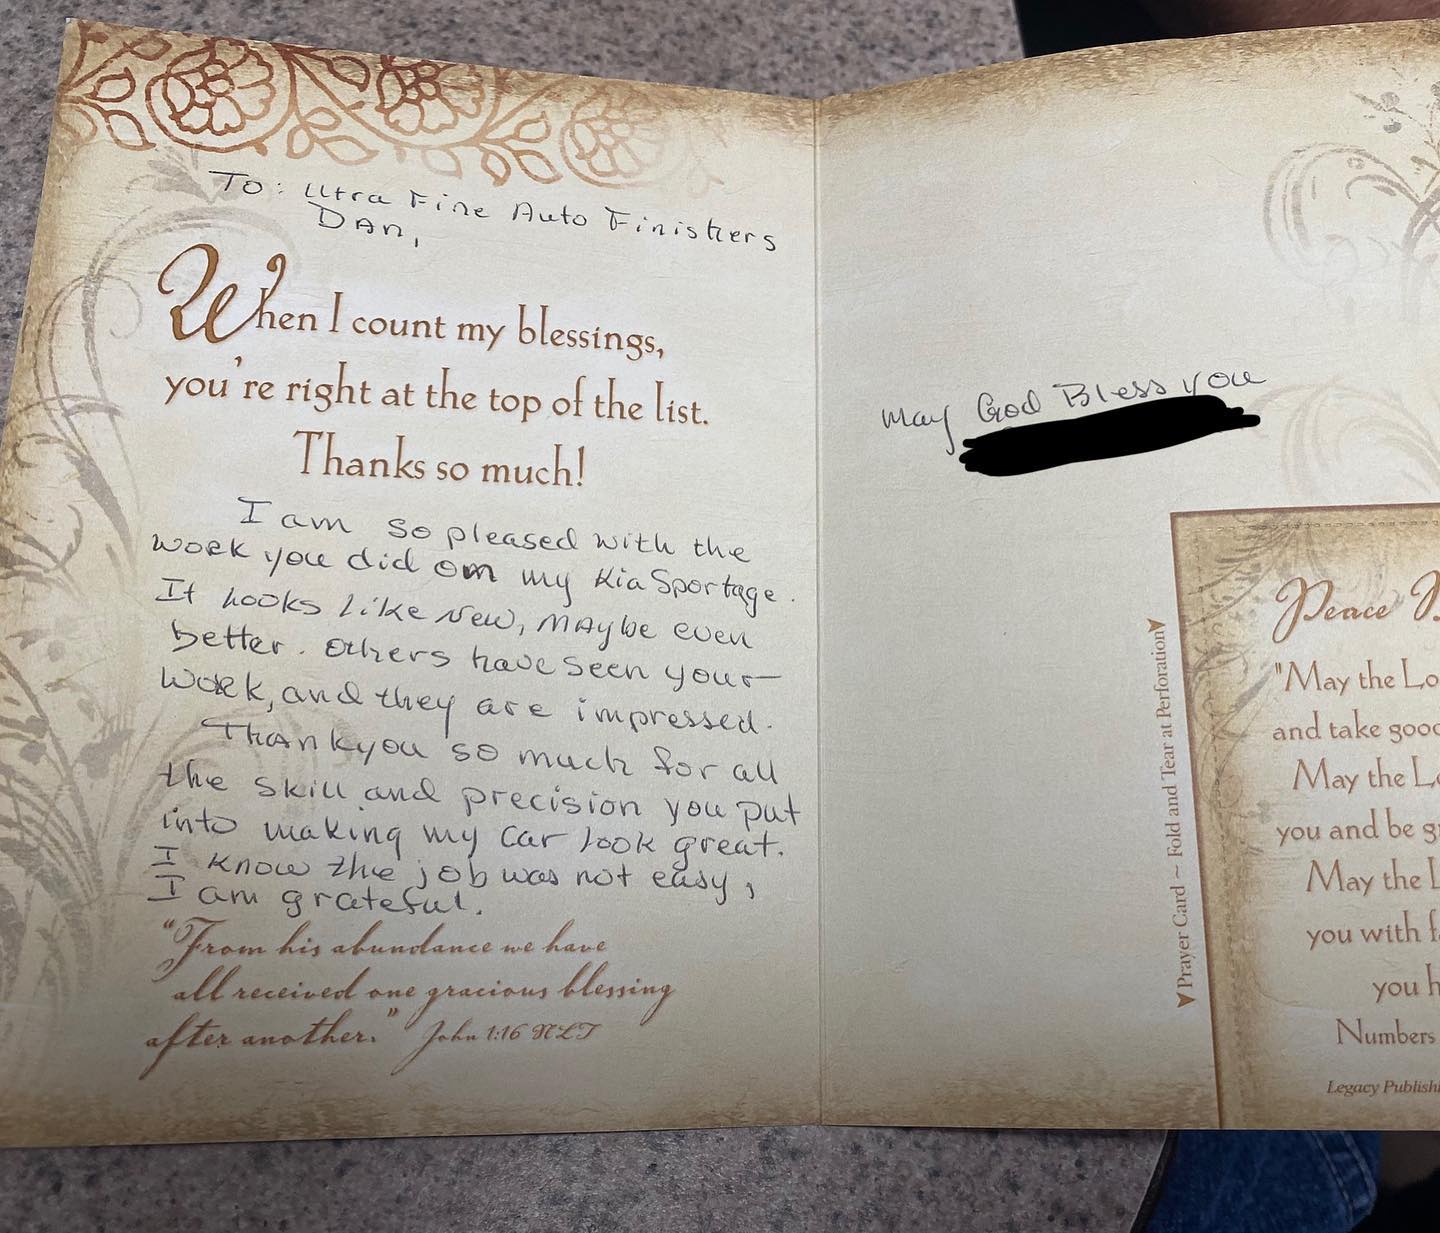 To: Utra Fine Auto Finishers
DAN,
When I count my blessings,
you're right at the top of the list.
Thanks so much!
I am so pleased with the
work you did on my Kia Sportage.
It looks like New, MAybe even
better. Others have seen your
work, and they are impressed.
Thank you so much for all
the skill and precision you put
into making my car look great.
I know the job was not easy,
I am grateful.
"From his abundance we have
all received one gracious blessing
after another." John 1:16 NLT
may God Bless you
Prayer Card ~ Fold and Tear at Perforation
Peace
"May the Lo
and take good
May the Lo
you and be g
May the L
you with f
you h
Numbers
Legacy Publishi